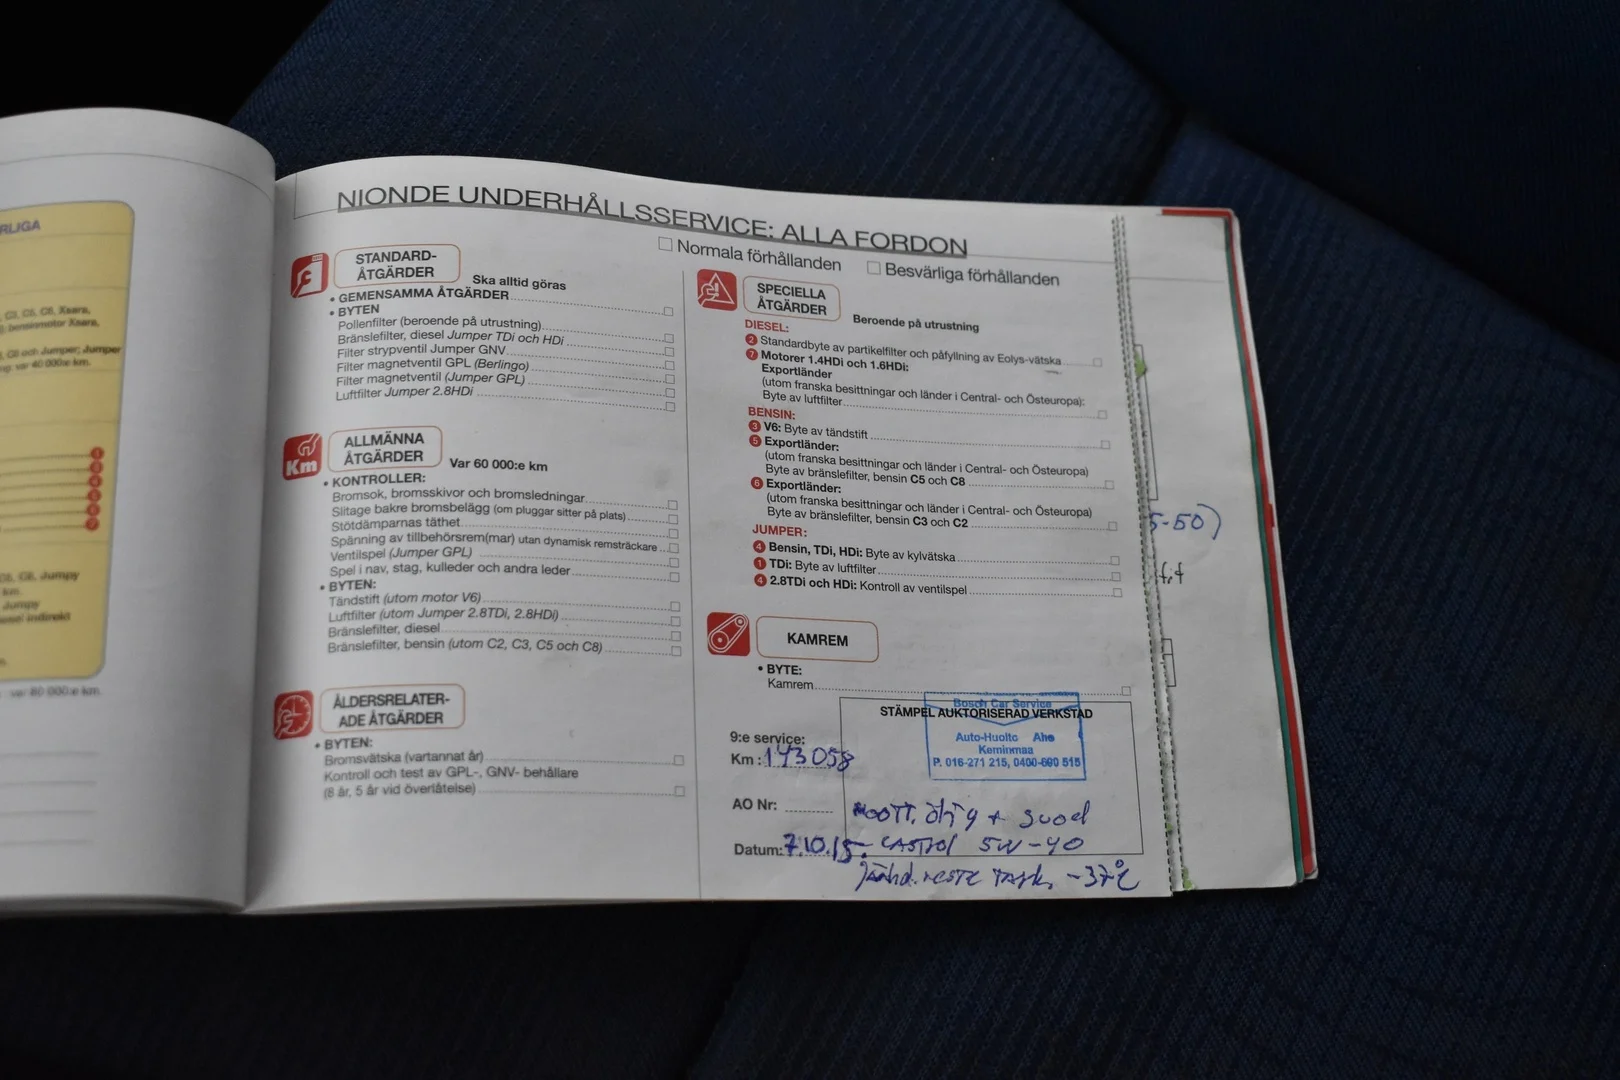 RLIGA
C3, C5, C8, Xsara,
bensinmotor Xsara,
C8 och Jumper; Jumper
var 40 000:e km.
C5, C8, Jumpy
km.
Jumpy
var 80 000:e km.
NIONDE UNDERHÅLLSSERVICE: ALLA FORDON
Normala förhållanden
Besvärliga förhållanden
STANDARD-
ÅTGÄRDER
Ska alltid göras
• GEMENSAMMA ÅTGÄRDER
• BYTEN
Pollenfilter (beroende på utrustning)
Bränslefilter, diesel Jumper TDi och HDi
Filter strypventil Jumper GNV
Filter magnetventil GPL (Berlingo)
Filter magnetventil (Jumper GPL)
Luftfilter Jumper 2.8HDi
Km
ALLMÄNNA
ÅTGÄRDER
Var 60 000:e km
• KONTROLLER:
Bromsok, bromsskivor och bromsledningar
Slitage bakre bromsbelägg (om pluggar sitter på plats)
Stötdämparnas täthet
Spänning av tillbehörsrem(mar) utan dynamisk remsträckare
Ventilspel (Jumper GPL)
Spel i nav, stag, kulleder och andra leder
• BYTEN:
Tändstift (utom motor V6)
Luftfilter (utom Jumper 2.8TDi, 2.8HDi)
Bränslefilter, diesel
Bränslefilter, bensin (utom C2, C3, C5 och C8)
ÅLDERSRELATER-
ADE ÅTGÄRDER
• BYTEN:
Bromsvätska (vartannat år)
Kontroll och test av GPL-, GNV- behållare
(8 år, 5 år vid överlåtelse)
SPECIELLA
ÅTGÄRDER
Beroende på utrustning
DIESEL:
2 Standardbyte av partikelfilter och påfyllning av Eolys-vätska
7 Motorer 1.4HDi och 1.6HDi:
Exportländer
(utom franska besittningar och länder i Central- och Östeuropa):
Byte av luftfilter
BENSIN:
3 V6: Byte av tändstift
5 Exportländer:
(utom franska besittningar och länder i Central- och Östeuropa)
Byte av bränslefilter, bensin C5 och C8
6 Exportländer:
(utom franska besittningar och länder i Central- och Östeuropa)
Byte av bränslefilter, bensin C3 och C2
JUMPER:
4 Bensin, TDi, HDi: Byte av kylvätska
1 TDi: Byte av luftfilter
4 2.8TDi och HDi: Kontroll av ventilspel
KAMREM
• BYTE:
Kamrem
STÄMPEL AUKTORISERAD VERKSTAD
Bosch Car Service
Auto-Huolto Aho
Keminmaa
P. 016-271 215, 0400-690 515
9:e service:
Km: 143058
AO Nr:
Datum: 7.10.15
moott. öljy + suod
CASTROL 5W-40
Jäähd. neste -37°C
5-50)